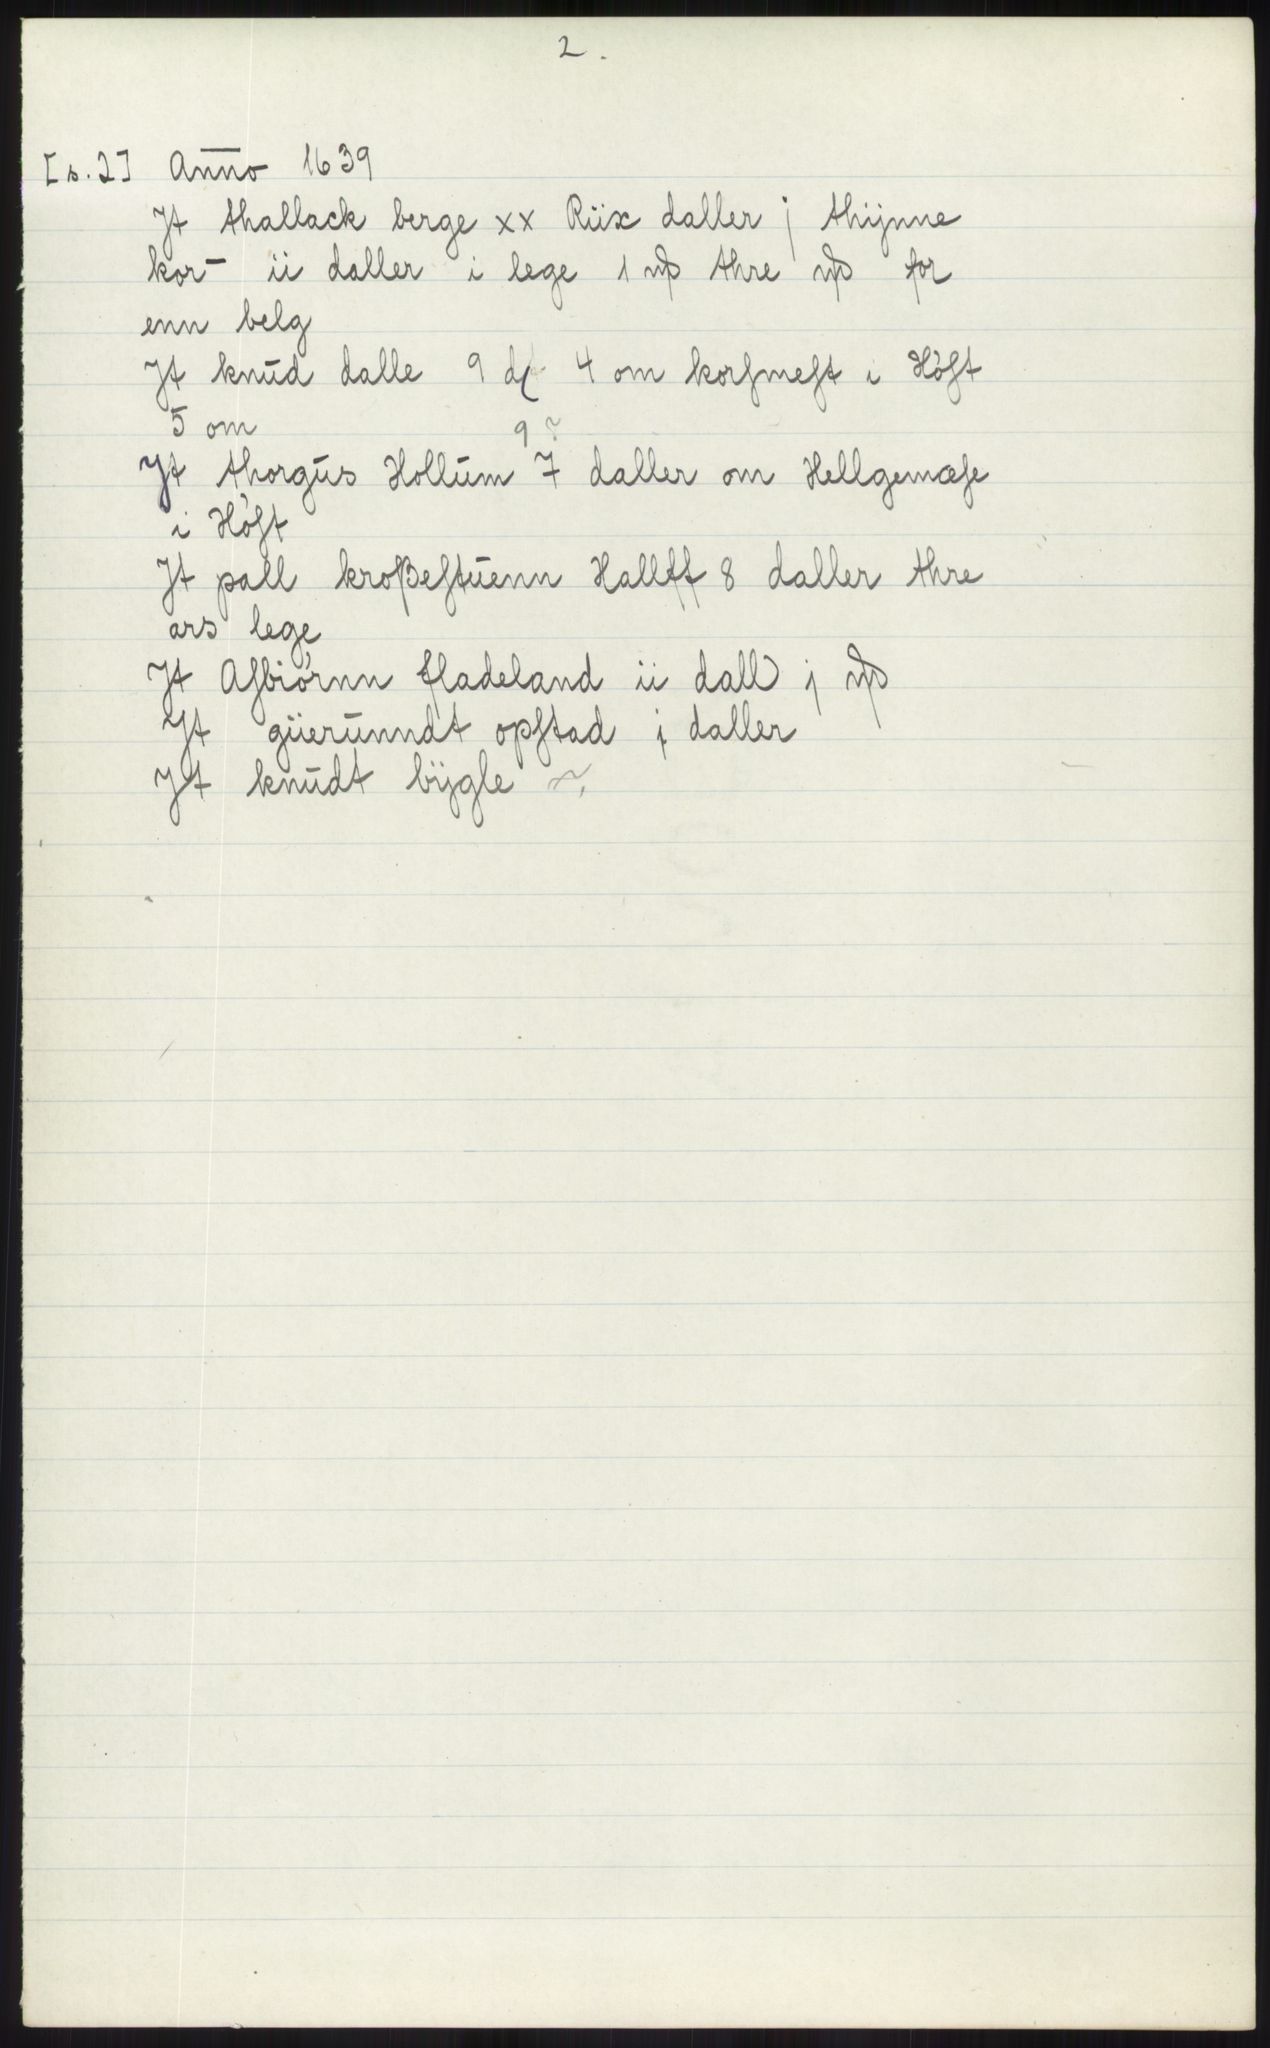 2.
[s. 2] Anno 1639
Jt thallack berge xx Riix daller j thijnne
kor- ii daller i lege 1 thre for
enn belg
Jt knŭd dalle 9 d 4 om korſmeſt i Høſt
5 om
9 ?
Jt thorgŭs Hollŭm 7 daller om Hellgemæſe
i Høſt
Jt pall kroßeſtŭenn Hallff 8 daller thre
ars lege
Jt Aſbiørnn ffladeland ii dall j
Jt güerŭnndt opſtad j daller
Jt knŭdt bijgle